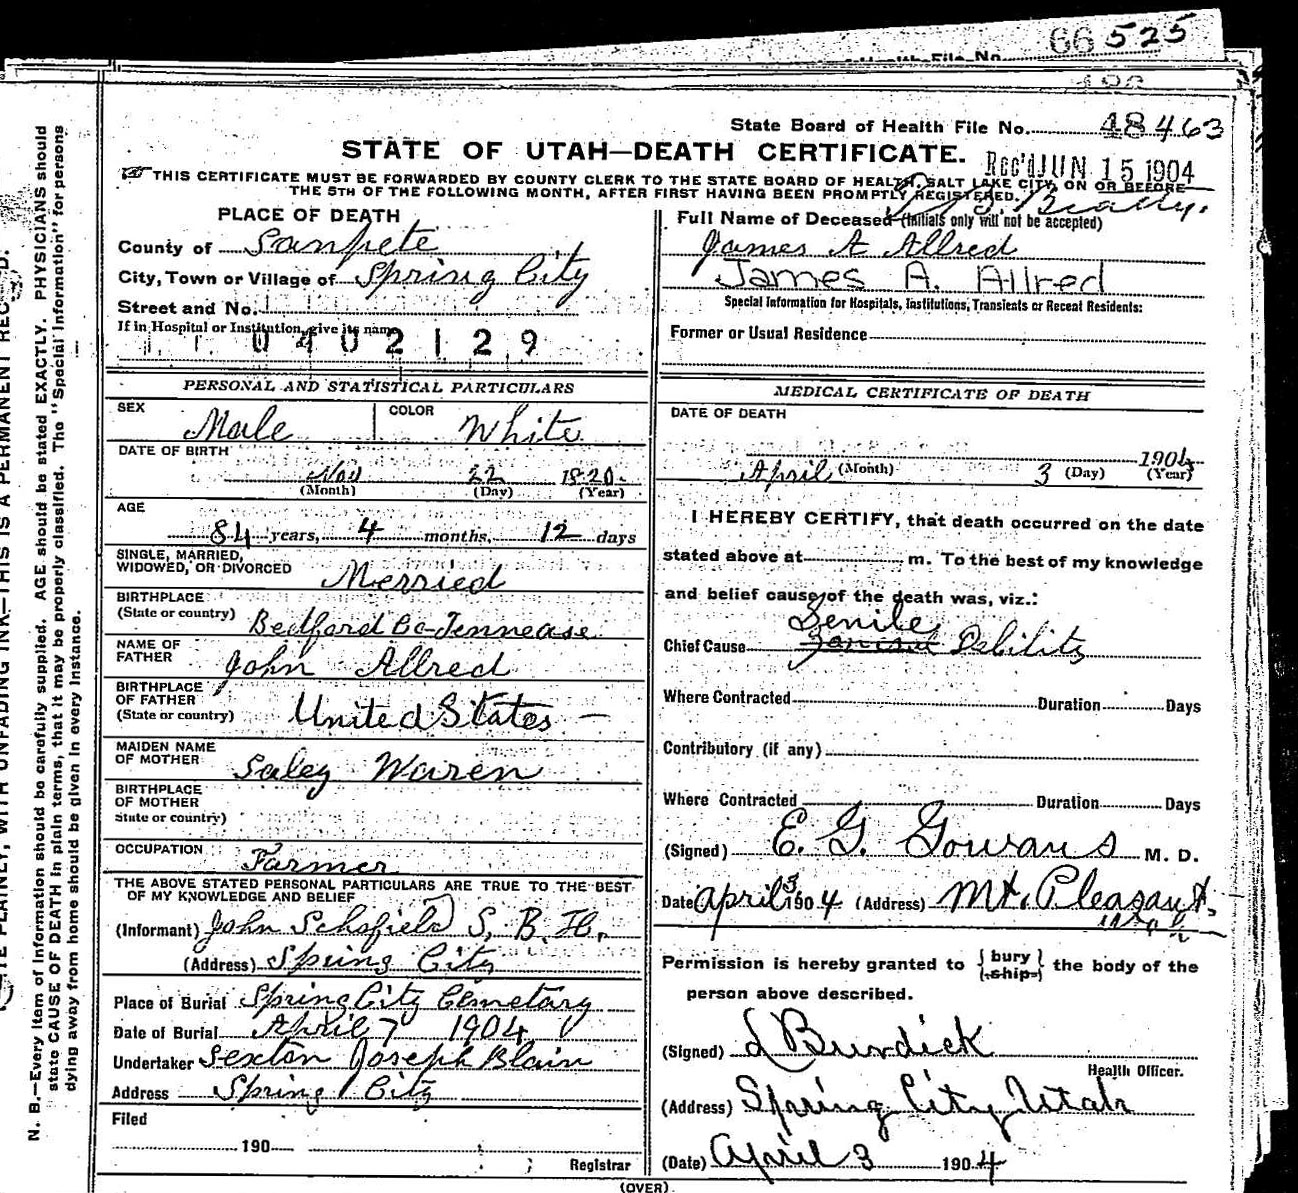 66 525
Health File No.
State Board of Health File No. 48463
STATE OF UTAH—DEATH CERTIFICATE.
Rec'd JUN 15 1904
THIS CERTIFICATE MUST BE FORWARDED BY COUNTY CLERK TO THE STATE BOARD OF HEALTH, SALT LAKE CITY, ON OR BEFORE
THE 5TH OF THE FOLLOWING MONTH, AFTER FIRST HAVING BEEN PROMPTLY REGISTERED.
PLACE OF DEATH
County of Sanpete
City, Town or Village of Spring City
Street and No.
If in Hospital or Institution, give its name
0402129
PERSONAL AND STATISTICAL PARTICULARS
SEX Male COLOR White
DATE OF BIRTH
Nov 22 1820
(Month) (Day) (Year)
AGE
84 years, 4 months, 12 days
SINGLE, MARRIED,
WIDOWED, OR DIVORCED Merried
BIRTHPLACE
(State or country) Bedford Co-Tennease
NAME OF
FATHER John Allred
BIRTHPLACE
OF FATHER
(State or country) United States —
MAIDEN NAME
OF MOTHER Saley Waren
BIRTHPLACE
OF MOTHER
State or country)
OCCUPATION Farmer
THE ABOVE STATED PERSONAL PARTICULARS ARE TRUE TO THE BEST
OF MY KNOWLEDGE AND BELIEF
(Informant) John Schofield S. B. H.
(Address) Spring City
Place of Burial Spring City Cemetary
Date of Burial April 7 1904
Undertaker Sexton Joseph Blain
Address Spring City
Filed
190
Registrar
Full Name of Deceased (Initials only will not be accepted)
James A Allred
James A. Allred
Special Information for Hospitals, Institutions, Transients or Recent Residents:
Former or Usual Residence
MEDICAL CERTIFICATE OF DEATH
DATE OF DEATH
April (Month) 3 (Day) 1904 (Year)
I HEREBY CERTIFY, that death occurred on the date
stated above at m. To the best of my knowledge
and belief cause of the death was, viz.:
Senile
Chief Cause Debility
Where Contracted Duration Days
Contributory (if any)
Where Contracted Duration Days
(Signed) E. G. Gowans M. D.
Date April 3 1904 (Address) Mt. Pleasant.
Utah
Permission is hereby granted to { bury / ship } the body of the
person above described.
(Signed) L Burdick
Health Officer.
(Address) Spring City Utah
(Date) April 3 1904
(OVER)
N. B.—Every item of information should be carefully supplied. AGE should be stated EXACTLY. PHYSICIANS should
state CAUSE OF DEATH in plain terms, that it may be properly classified. The "Special Information" for persons
dying away from home should be given in every instance.
WITH UNFADING INK—THIS IS A PERMANENT